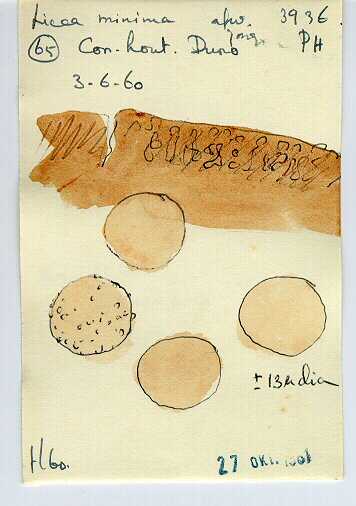 Licea minima afw. 3936
65 Con. hout. Duno PH
3-6-60
± 13 μ dia
H60.
27 OKT. 2001